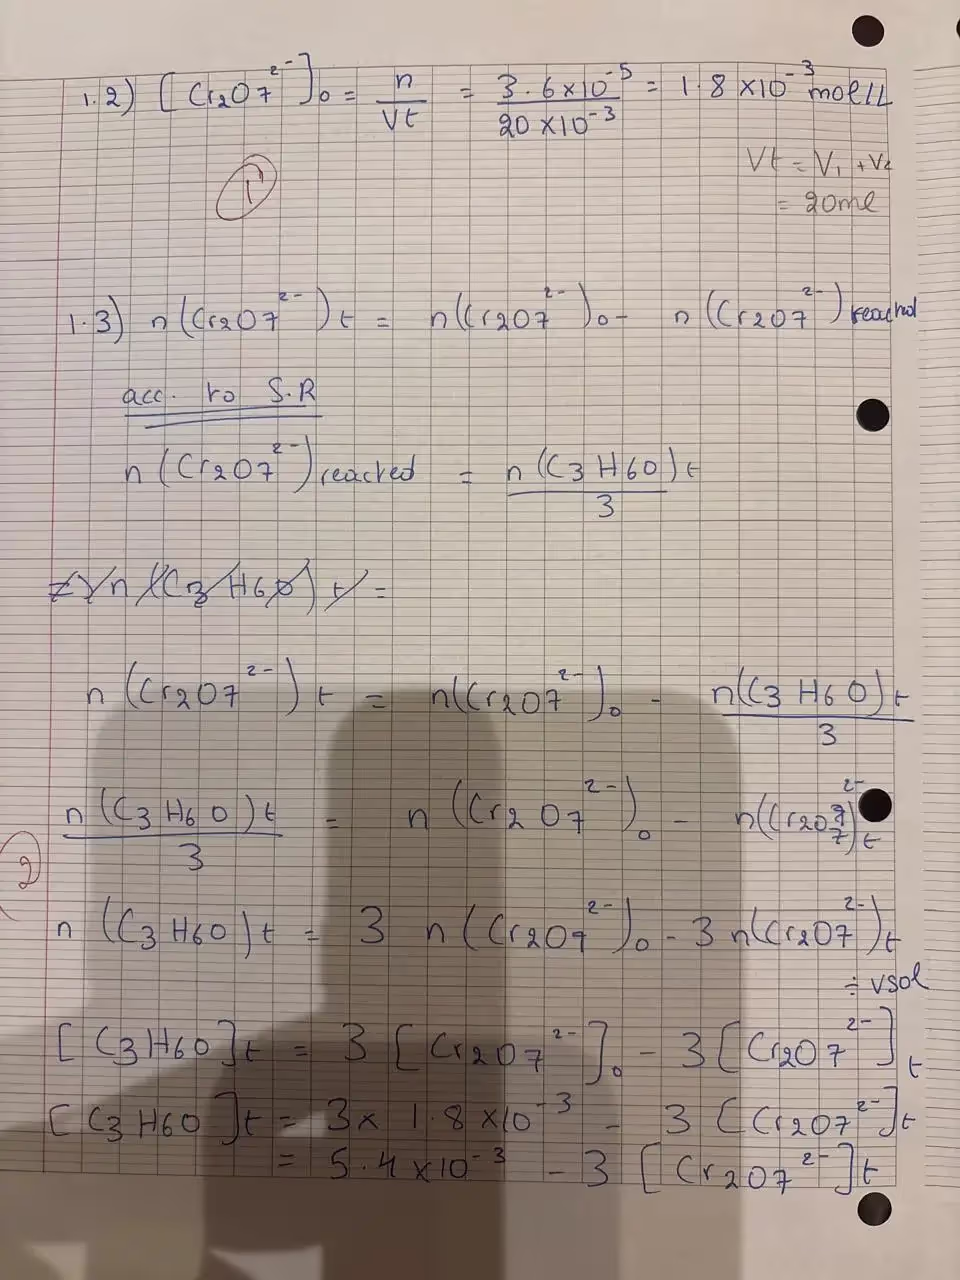 1.2) [Cr2O7^2-]0 = n/Vt = 3.6×10^-5/20×10^-3 = 1.8×10^-3 mol/L
Vt = V1 + V2
= 20ml
1
1.3) n(Cr2O7^2-)t = n(Cr2O7^2-)0 - n(Cr2O7^2-)reacted
acc. to S.R
n(Cr2O7^2-)reacted = n(C3H6O)t/3
=> n(C3H6O)t =
n(Cr2O7^2-)t = n(Cr2O7^2-)0 - n(C3H6O)t/3
n(C3H6O)t/3 = n(Cr2O7^2-)0 - n(Cr2O7^2-)t
2
n(C3H6O)t = 3 n(Cr2O7^2-)0 - 3 n(Cr2O7^2-)t
÷ Vsol
[C3H6O]t = 3[Cr2O7^2-]0 - 3[Cr2O7^2-]t
[C3H6O]t = 3× 1.8×10^-3 - 3[Cr2O7^2-]t
= 5.4×10^-3 - 3[Cr2O7^2-]t